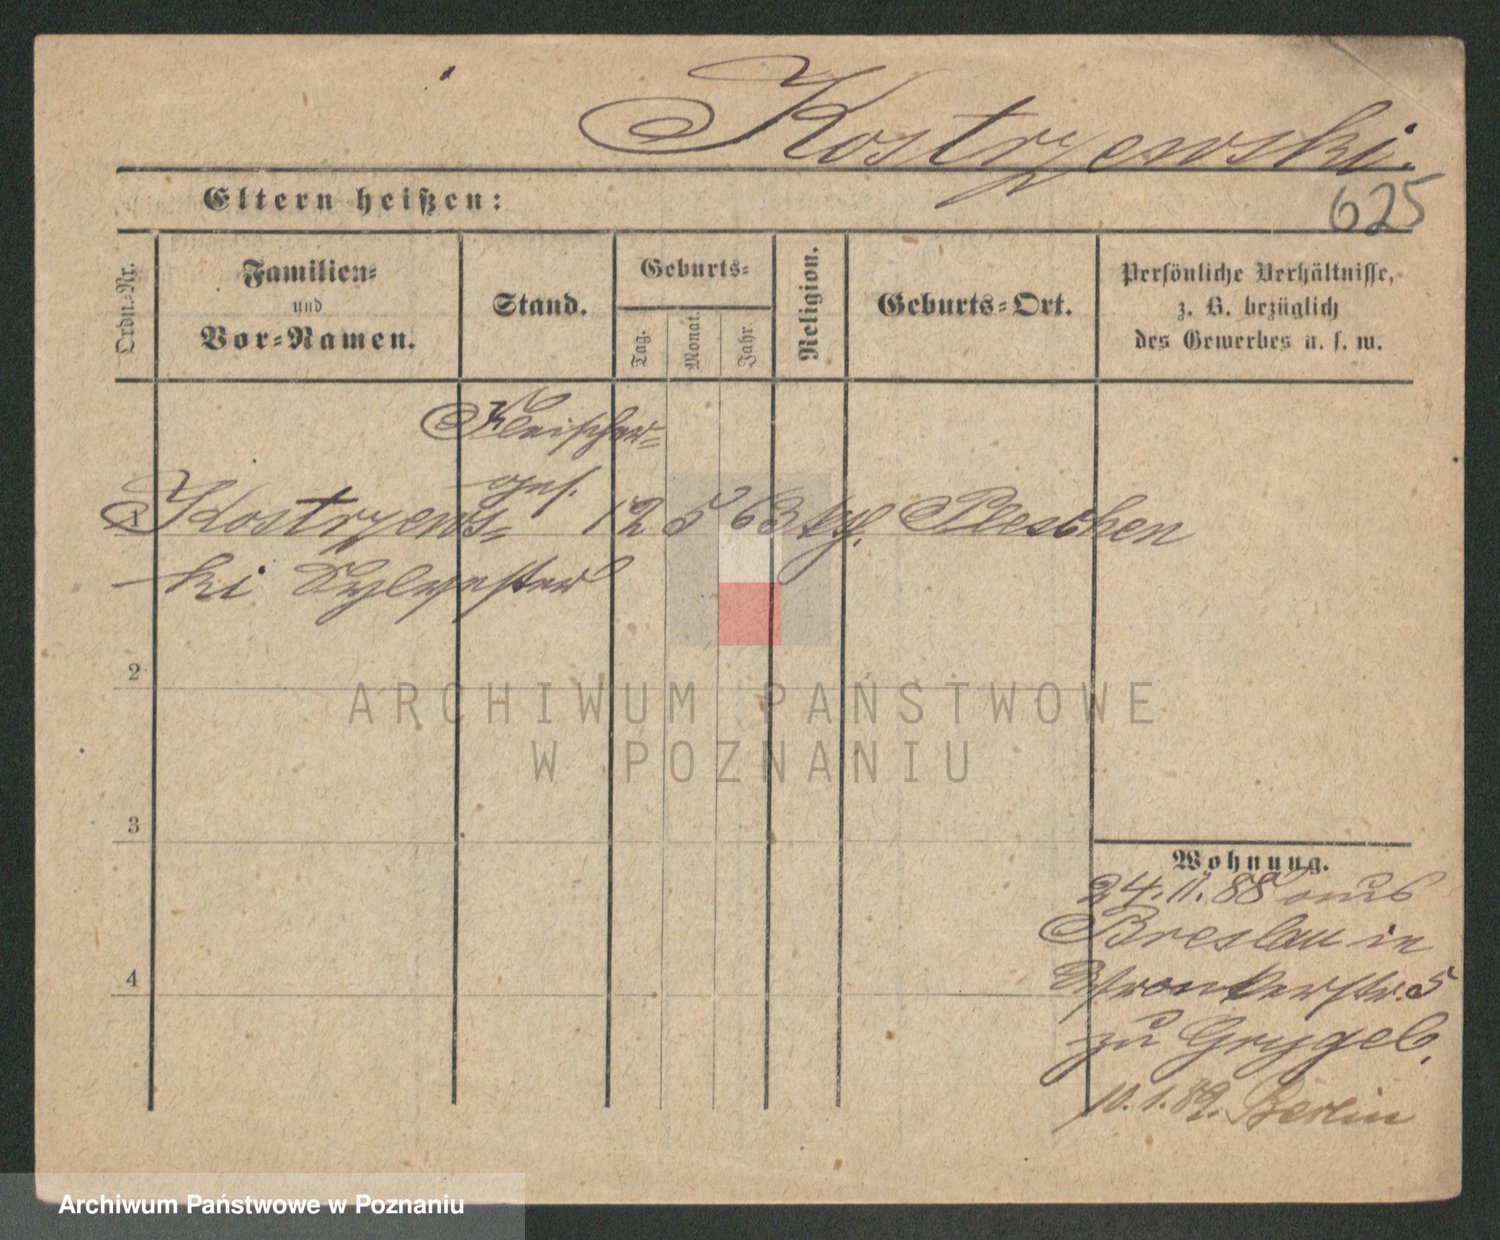 Kostrzewski.
625
Eltern heißen:
Ordn.-Nr.
Familien-
und
Vor-Namen.
Stand.
Geburts-
Tag.
Monat.
Jahr.
Religion.
Geburts-Ort.
Persönliche Verhältnisse,
z. B. bezüglich
des Gewerbes u. s. w.
Fleischer-
ges.
1 Kostrzews- 12 5 63 kg. Pleschen
ki Sylvester
2
ARCHIWUM PAŃSTWOWE
W POZNANIU
3
Wohnung.
24.11.88 aus
Breslau in
Wronkerstr. 5
zu Grygel.
4
10.1.89. Berlin
Archiwum Państwowe w Poznaniu